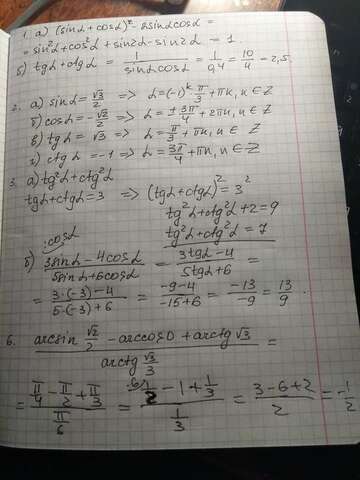 1. а) (sinα + cosα)² - 2sinαcosα =
= sin²α + cos²α + sin2α - sin2α = 1
б) tgα + ctgα = 1/(sinαcosα) = 1/0,4 = 10/4 = 2,5.
2. а) sinα = √3/2 => α = (-1)ᵏ π/3 + πk, k ∈ Z
б) cosα = -√2/2 => α = ± 3π/4 + 2πn, n ∈ Z
в) tgα = √3 => α = π/3 + πn, n ∈ Z
г) ctgα = -1 => α = 3π/4 + πn, n ∈ Z
3. а) tg²α + ctg²α
tgα + ctgα = 3 => (tgα + ctgα)² = 3²
tg²α + ctg²α + 2 = 9
tg²α + ctg²α = 7
:cosα
б) (3sinα - 4cosα)/(5sinα + 6cosα) = (3tgα - 4)/(5tgα + 6) =
= (3·(-3) - 4)/(5·(-3) + 6) = (-9-4)/(-15+6) = -13/-9 = 13/9.
6. (arcsin √2/2 - arccos0 + arctg√3)/(arctg √3/3) =
= (π/4 - π/2 + π/3)/(π/6) = (1/2 - 1 + 1/3)/(1/3) = (3-6+2)/2 = -1/2